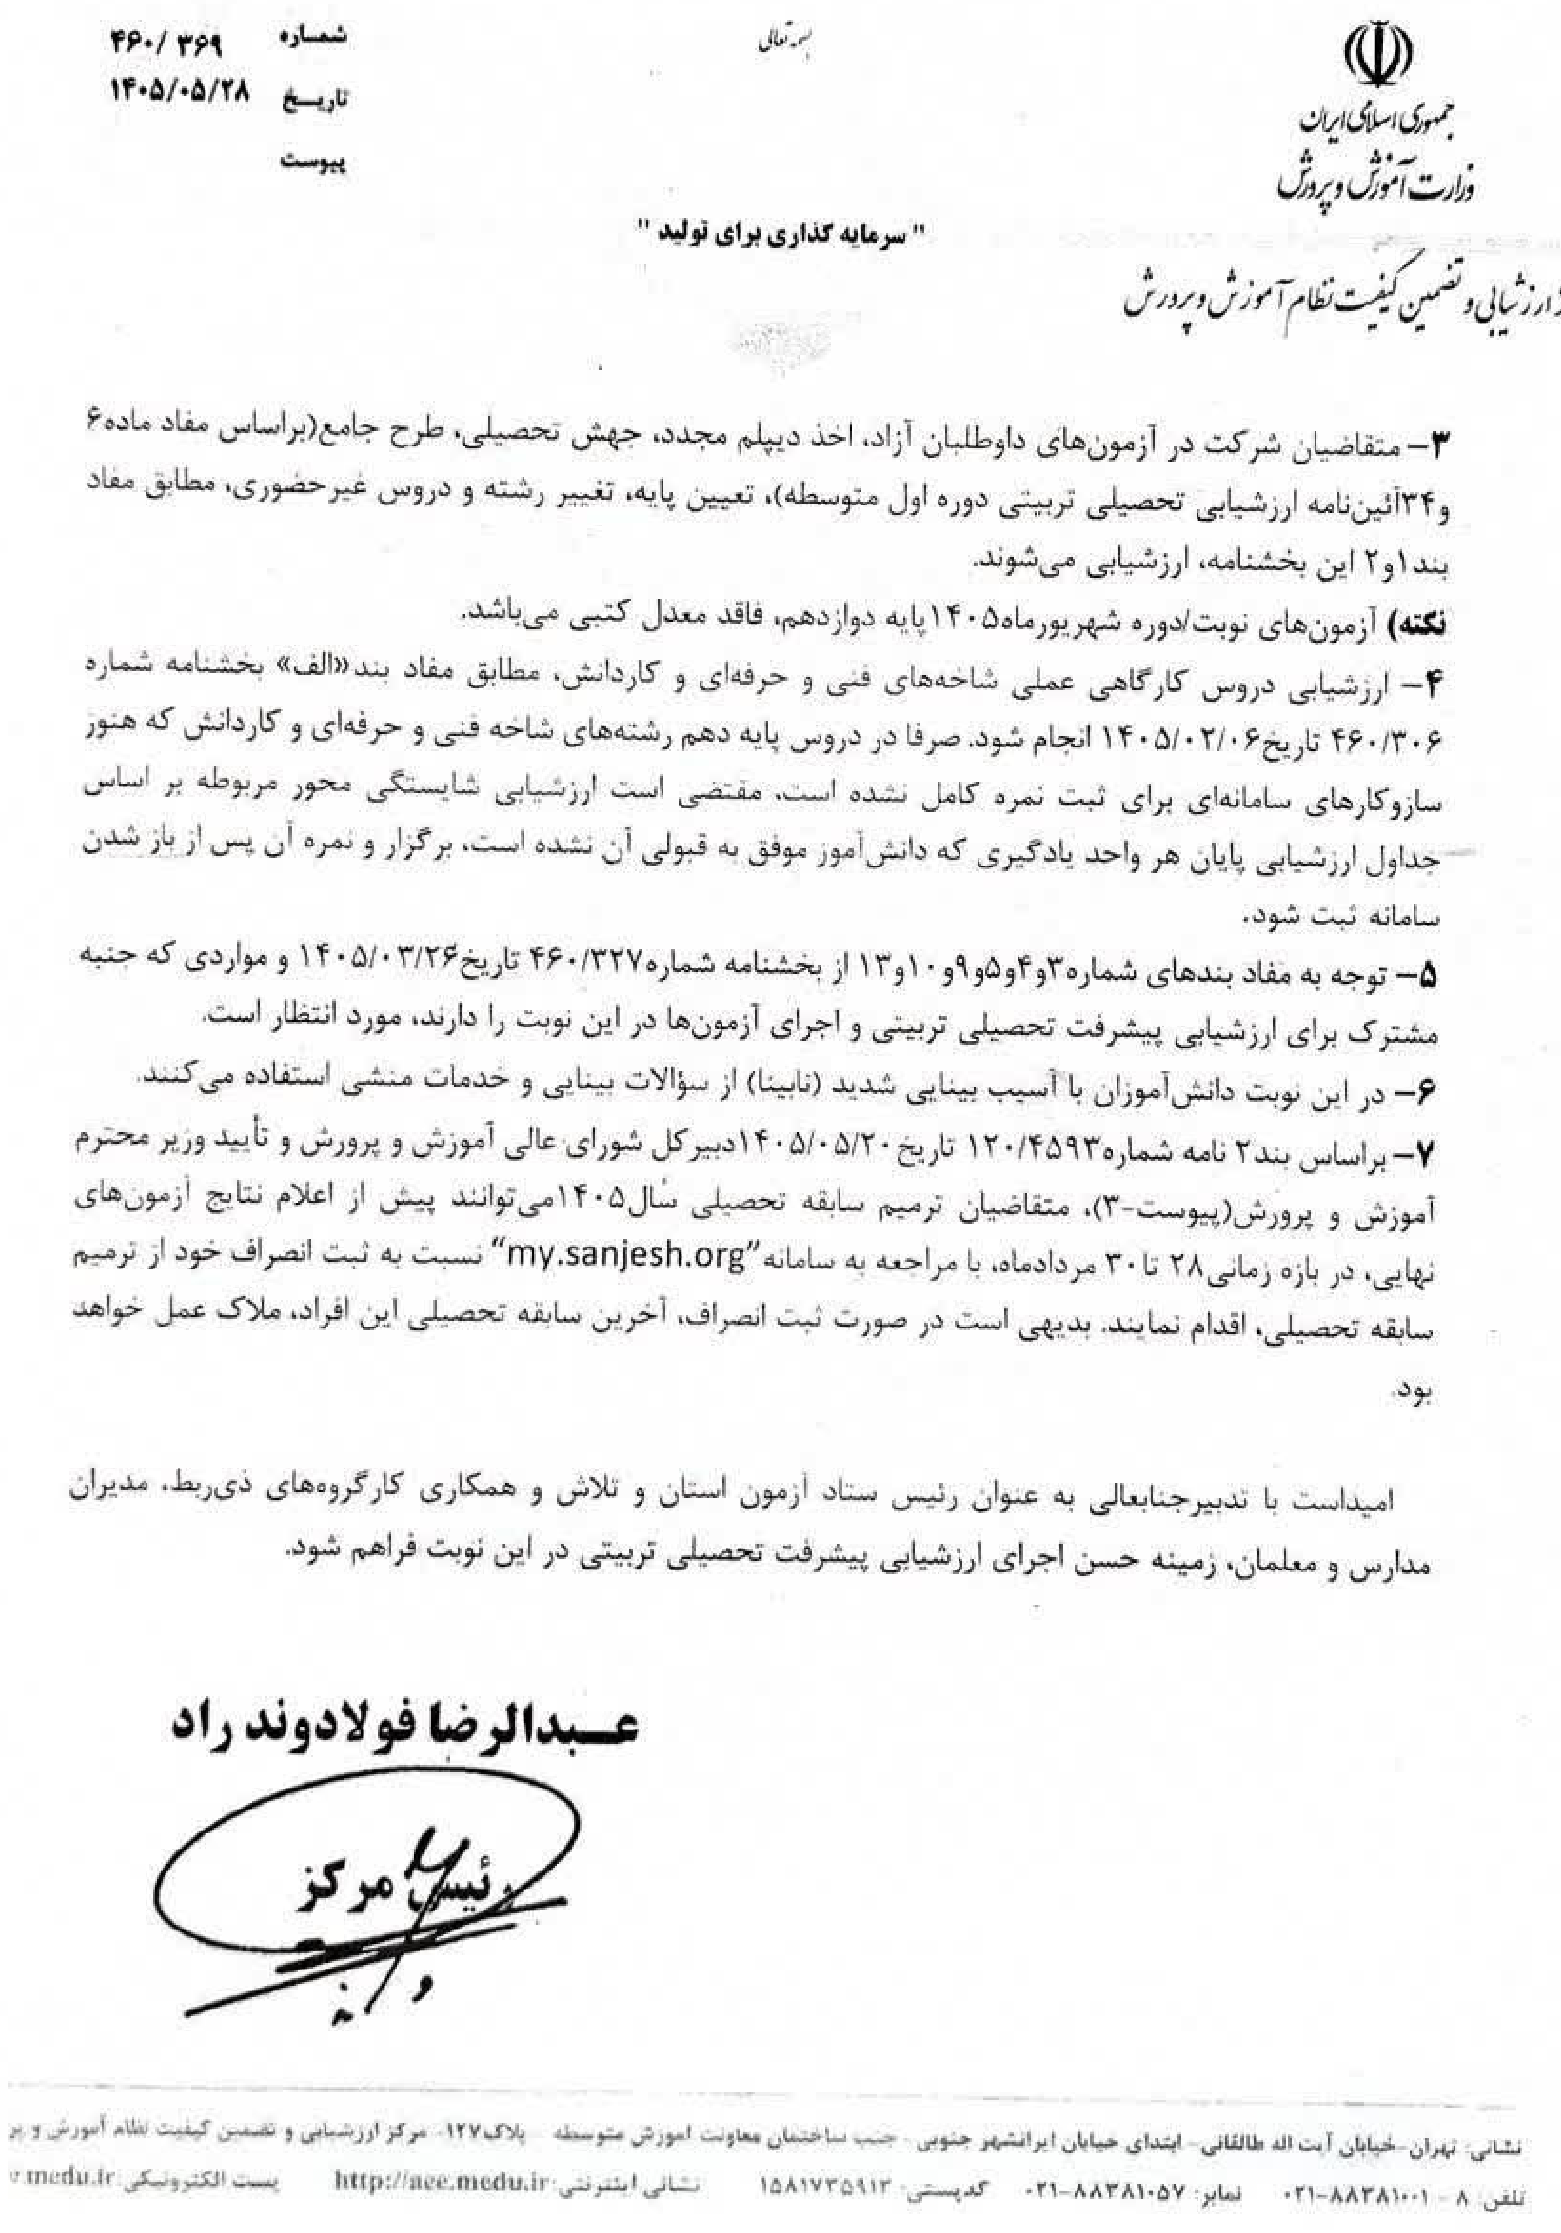 بسمه تعالی
جمهوری اسلامی ایران
وزارت آموزش و پرورش
ارزشیابی و تضمین کیفیت نظام آموزش و پرورش
شماره ۴۶۰/ ۳۶۹
تاریخ ۱۴۰۵/۰۵/۲۸
پیوست
" سرمایه گذاری برای تولید "
۳- متقاضیان شرکت در آزمون‌های داوطلبان آزاد، اخذ دیپلم مجدد، جهش تحصیلی، طرح جامع(براساس مفاد ماده۶
و۳۴آئین‌نامه ارزشیابی تحصیلی تربیتی دوره اول متوسطه)، تعیین پایه، تغییر رشته و دروس غیرحضوری، مطابق مفاد
بند۱و۲ این بخشنامه، ارزشیابی می‌شوند.
نکته) آزمون‌های نوبت/دوره شهریورماه۱۴۰۵پایه دوازدهم، فاقد معدل کتبی می‌باشد.
۴- ارزشیابی دروس کارگاهی عملی شاخه‌های فنی و حرفه‌ای و کاردانش، مطابق مفاد بند«الف» بخشنامه شماره
۴۶۰/۳۰۶ تاریخ۱۴۰۵/۰۲/۰۶ انجام شود. صرفا در دروس پایه دهم رشته‌های شاخه فنی و حرفه‌ای و کاردانش که هنوز
سازوکارهای سامانه‌ای برای ثبت نمره کامل نشده است، مقتضی است ارزشیابی شایستگی محور مربوطه بر اساس
جداول ارزشیابی پایان هر واحد یادگیری که دانش‌آموز موفق به قبولی آن نشده است، برگزار و نمره آن پس از باز شدن
سامانه ثبت شود.
۵- توجه به مفاد بندهای شماره۳و۴و۵و۹و۱۰و۱۳ از بخشنامه شماره۴۶۰/۳۲۷ تاریخ۱۴۰۵/۰۳/۲۶ و مواردی که جنبه
مشترک برای ارزشیابی پیشرفت تحصیلی تربیتی و اجرای آزمون‌ها در این نوبت را دارند، مورد انتظار است.
۶- در این نوبت دانش‌آموزان با آسیب بینایی شدید (نابینا) از سؤالات بینایی و خدمات منشی استفاده می‌کنند.
۷- براساس بند۲ نامه شماره۱۲۰/۴۵۹۳ تاریخ۱۴۰۵/۰۵/۲۰دبیرکل شورای عالی آموزش و پرورش و تأیید وزیر محترم
آموزش و پرورش(پیوست-۳)، متقاضیان ترمیم سابقه تحصیلی سال۱۴۰۵می‌توانند پیش از اعلام نتایج آزمون‌های
نهایی، در بازه زمانی۲۸ تا۳۰ مردادماه، با مراجعه به سامانه"my.sanjesh.org" نسبت به ثبت انصراف خود از ترمیم
سابقه تحصیلی، اقدام نمایند. بدیهی است در صورت ثبت انصراف، آخرین سابقه تحصیلی این افراد، ملاک عمل خواهد
بود.
امیداست با تدبیرجنابعالی به عنوان رئیس ستاد آزمون استان و تلاش و همکاری کارگروه‌های ذی‌ربط، مدیران
مدارس و معلمان، زمینه حسن اجرای ارزشیابی پیشرفت تحصیلی تربیتی در این نوبت فراهم شود.
عبدالرضا فولادوند راد
رئیس مرکز
نشانی: تهران-خیابان آیت اله طالقانی- ابتدای خیابان ایرانشهر جنوبی - جنب ساختمان معاونت آموزش متوسطه - پلاک۱۲۷- مرکز ارزشیابی و تضمین کیفیت نظام آموزش و پر
تلفن: ۸ - ۰۲۱-۸۸۳۸۱۰۰۱ نمابر: ۰۲۱-۸۸۳۸۱۰۵۷ کدپستی: ۱۵۸۱۷۳۵۹۱۳ نشانی اینترنتی: http://aee.medu.ir پست الکترونیکی: medu.ir